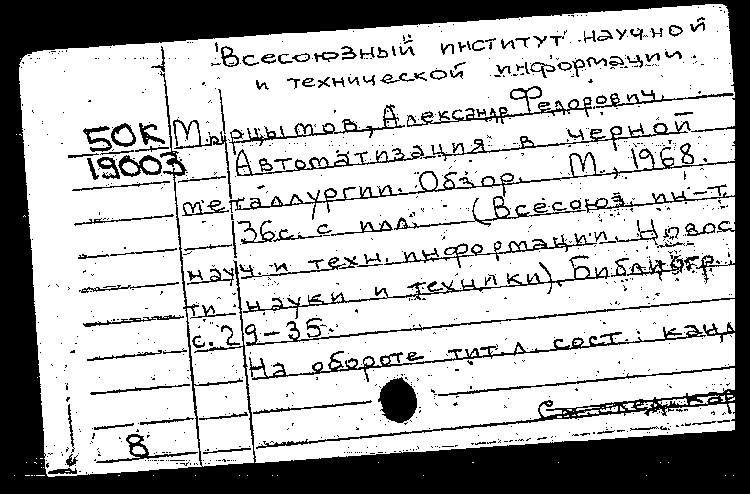 Всесоюзный институт научной
и технической информации.
50К Мырцымов, Александр Федорович.
19003 Автоматизация в черной
металлургии. Обзор. М., 1968.
36с. с илл. (Всесоюз. ин-т
науч. и техн. информации. Новос
ти науки и техники). Библиогр.
с. 29-35.
На обороте тит. л. сост.: канд
См. след. кар
8